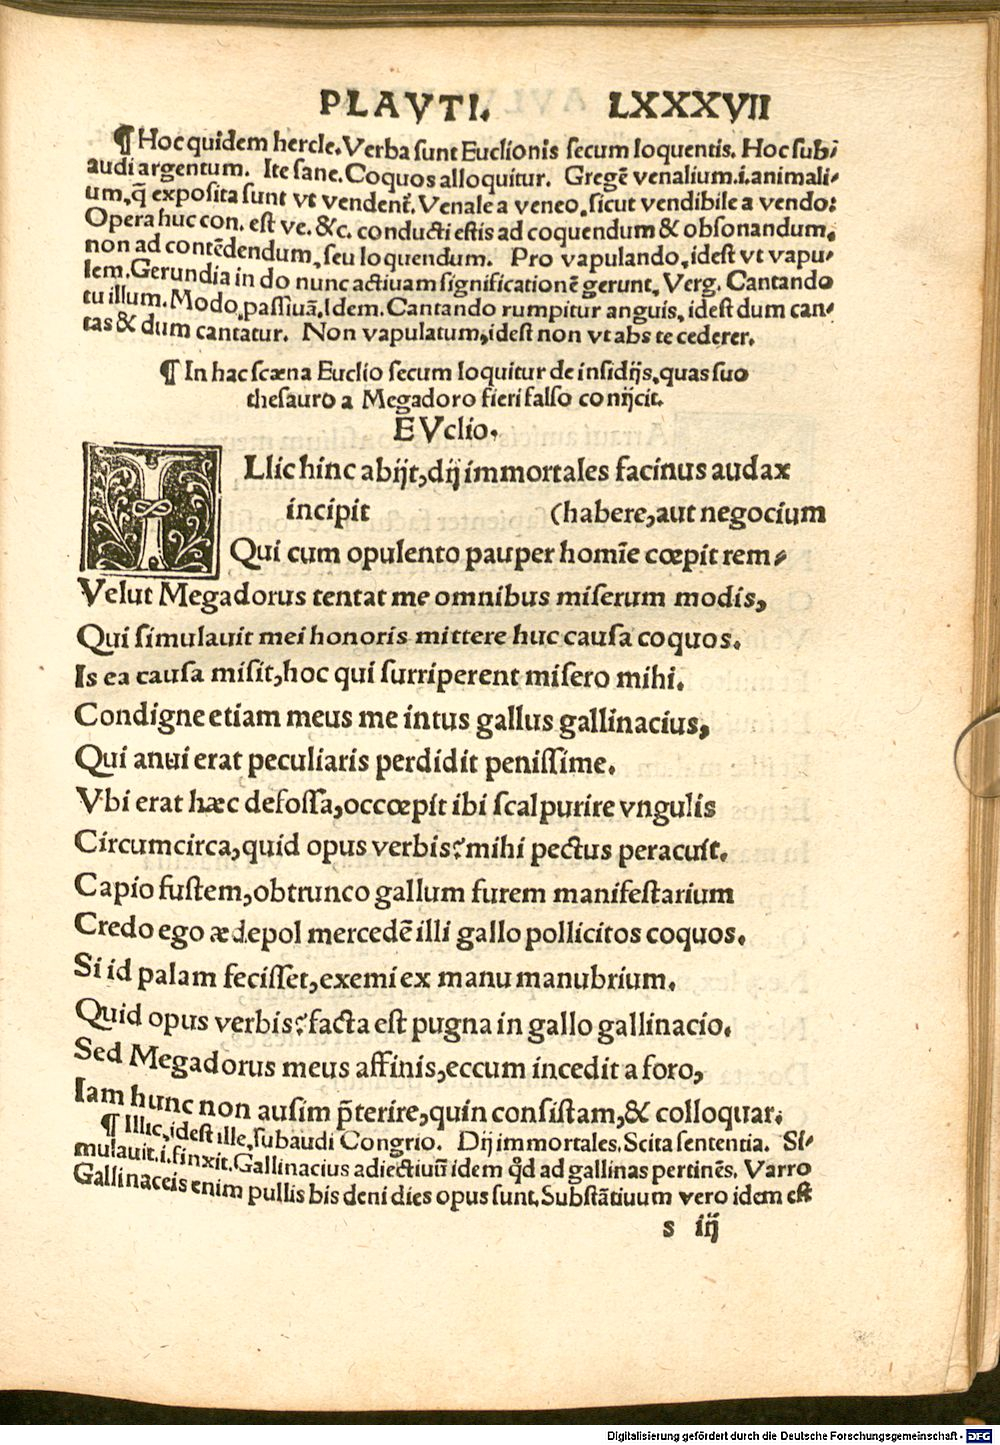 PLAVTI. LXXXVII
¶ Hoc quidem hercle. Verba sunt Euclionis secum loquentis. Hoc subi
audi argentum. Ite sane. Coquos alloquitur. Gregē venalium .i. animali-
um, q̄ exposita sunt vt vendent᷑. Venale a veneo, sicut vendibile a vendo:
Opera huc con. est ve. &c. conducti estis ad coquendum & obsonandum,
non ad contēdendum, seu loquendum. Pro vapulando, idest vt vapu-
lem. Gerundia in do nunc actiuam significationē gerunt, Verg. Cantando
tu illum. Modo, passiuā, Idem. Cantando rumpitur anguis, idest dum can-
tas & dum cantatur. Non vapulatum, idest non vt abs te cederer.
¶ In hac scæna Euclio secum loquitur de insidijs, quas suo
thesauro a Megadoro fieri falso conijcit.
EVclio.
ILlic hinc abijt, dij immortales facinus audax
incipit (habere, aut negocium
Qui cum opulento pauper homīe cœpit rem-
Velut Megadorus tentat me omnibus miserum modis,
Qui simulauit mei honoris mittere huc causa coquos.
Is ea causa misit, hoc qui surriperent misero mihi.
Condigne etiam meus me intus gallus gallinacius,
Qui anui erat peculiaris perdidit penissime.
Vbi erat hæc defossa, occœpit ibi scalpurire vngulis
Circumcirca, quid opus verbis? mihi pectus peracuit.
Capio fustem, obtrunco gallum furem manifestarium
Credo ego ædepol mercedē illi gallo pollicitos coquos.
Si id palam fecisset, exemi ex manu manubrium.
Quid opus verbis? facta est pugna in gallo gallinacio.
Sed Megadorus meus affinis, eccum incedit a foro,
Iam hunc non ausim p̄terire, quin consistam, & colloquar.
¶ Illic, idest ille, subaudi Congrio. Dij immortales. Scita sententia. Si-
mulauit .i. finxit. Gallinacius adiectiuū idem qd̓ ad gallinas pertinēs. Varro
Gallinaceis enim pullis bis deni dies opus sunt. Substātiuum vero idem est
s iij
Digitalisierung gefördert durch die Deutsche Forschungsgemeinschaft - DFG